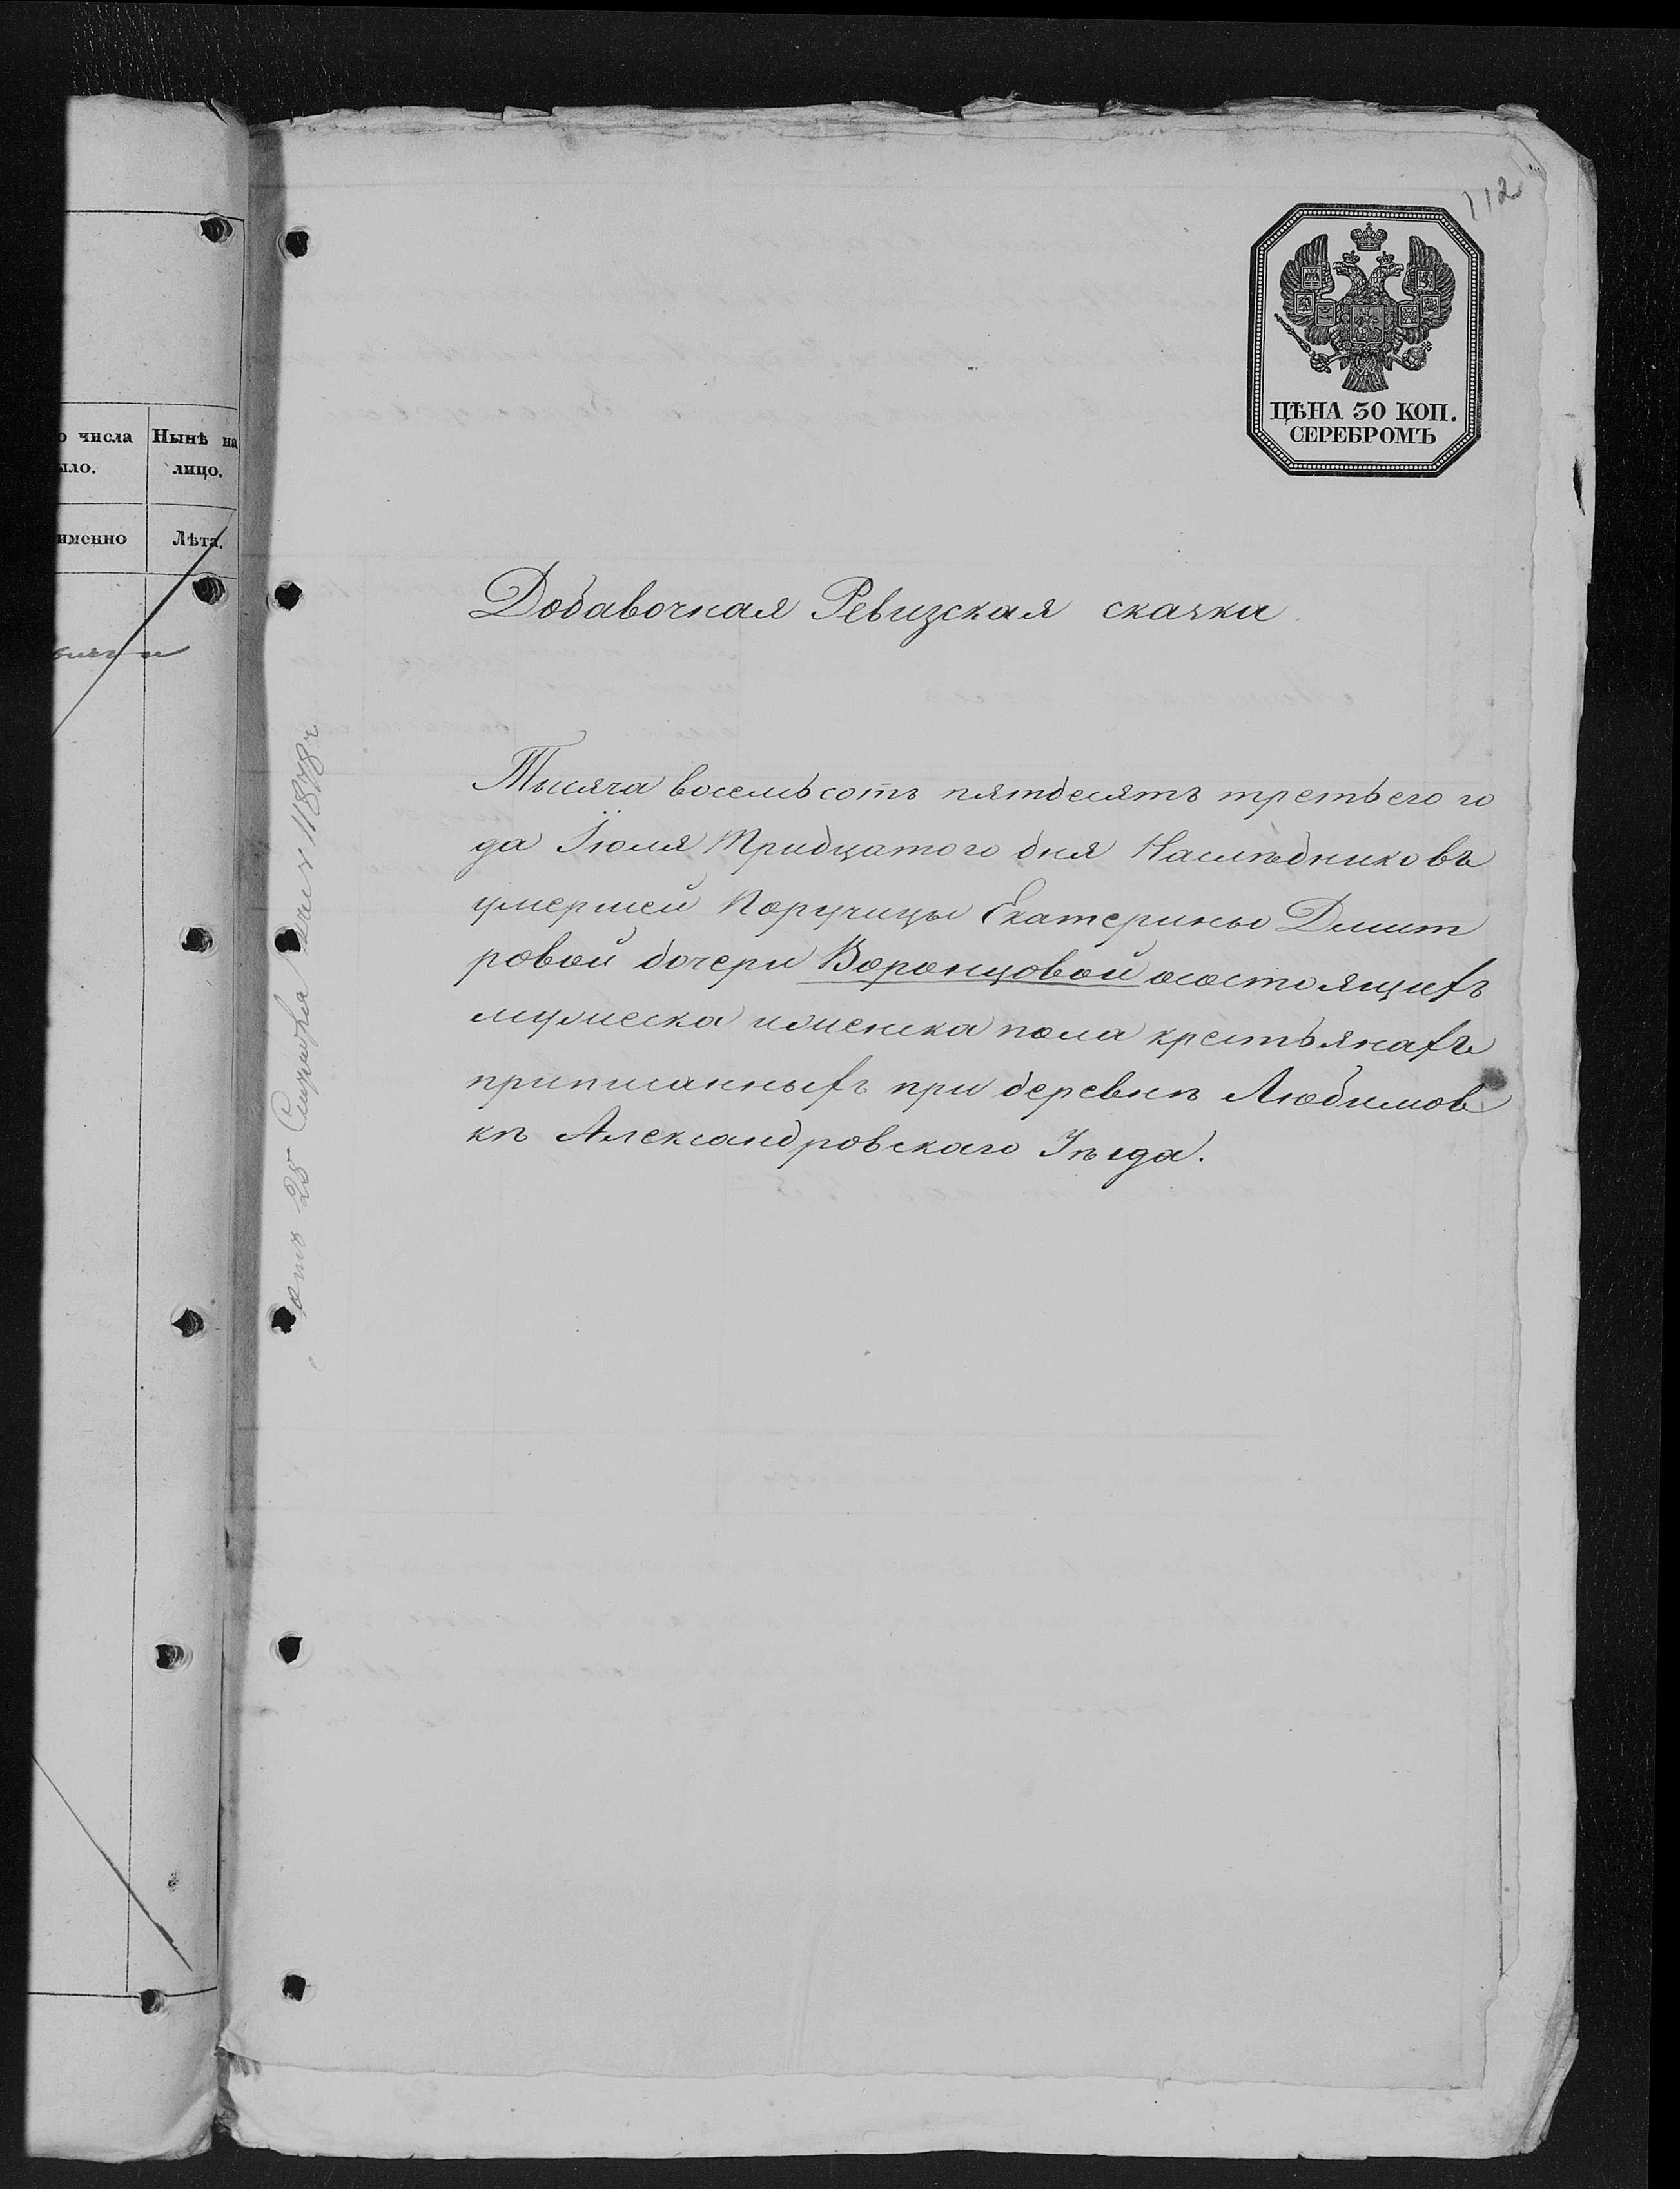 о числа
ыло.
Нынѣ на
лицо.
именно
Лѣта.
112
ЦѢНА 30 КОП.
СЕРЕБРОМЪ
Добавочная Ревизская сказка
Тысяча восемьсотъ пятдесятъ третьего го
да Іюля Тридцатого дня Наслѣдниковъ
умершей Поручицы Екатерины Дмит
ровой дочери Воронцовой осостоящихъ
мужеска иженска пола крестьянахъ
приписанныхъ при деревнѣ Любимов
кѣ Александровскаго Уѣзда.
отъ 25
1878г